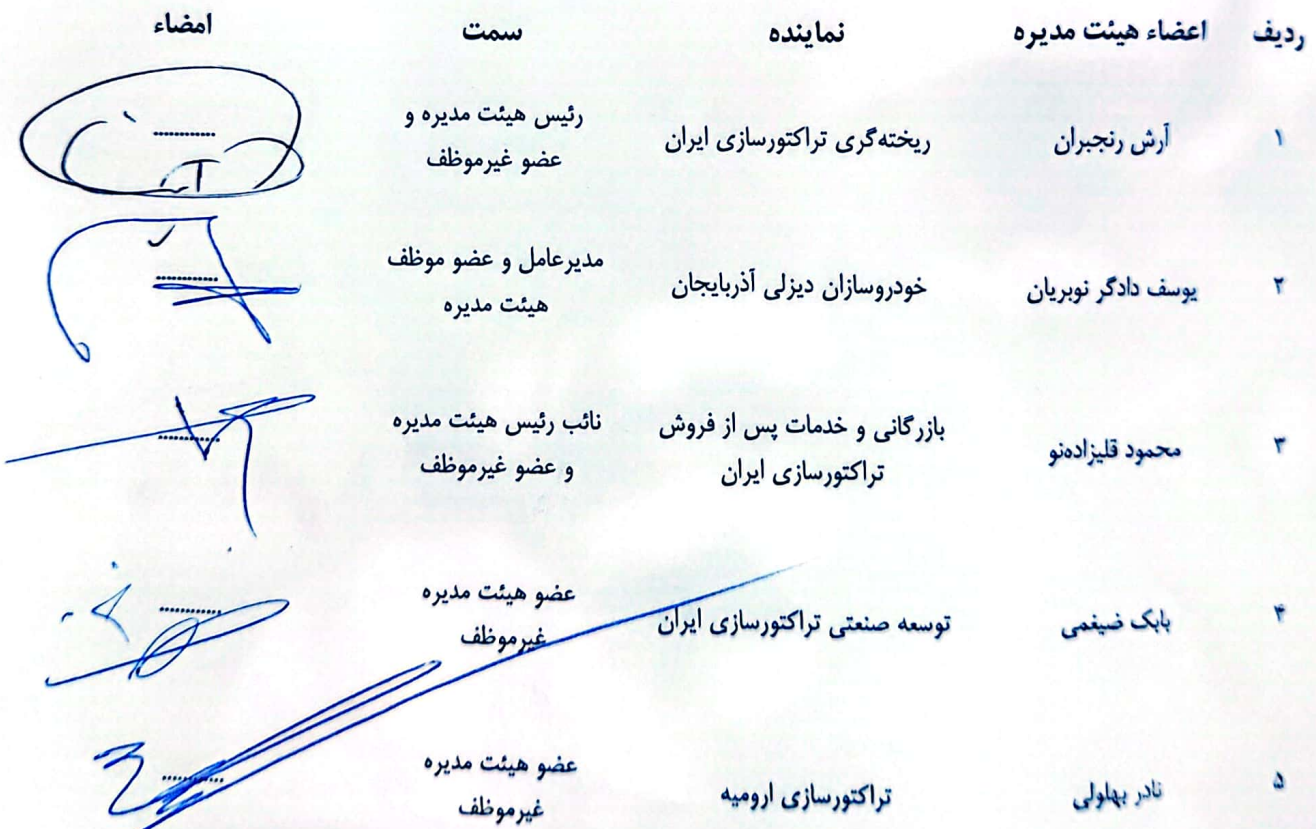 ردیف اعضاء هیئت مدیره نماینده سمت امضاء
۱ آرش رنجبران ریخته‌گری تراکتورسازی ایران رئیس هیئت مدیره و
عضو غیرموظف
۲ یوسف دادگر نوبریان خودروسازان دیزلی آذربایجان مدیرعامل و عضو موظف
هیئت مدیره
۳ محمود قلیزاده‌نو بازرگانی و خدمات پس از فروش نائب رئیس هیئت مدیره
تراکتورسازی ایران و عضو غیرموظف
۴ بابک ضیغمی توسعه صنعتی تراکتورسازی ایران عضو هیئت مدیره
غیرموظف
۵ نادر بهلولی تراکتورسازی ارومیه عضو هیئت مدیره
غیرموظف